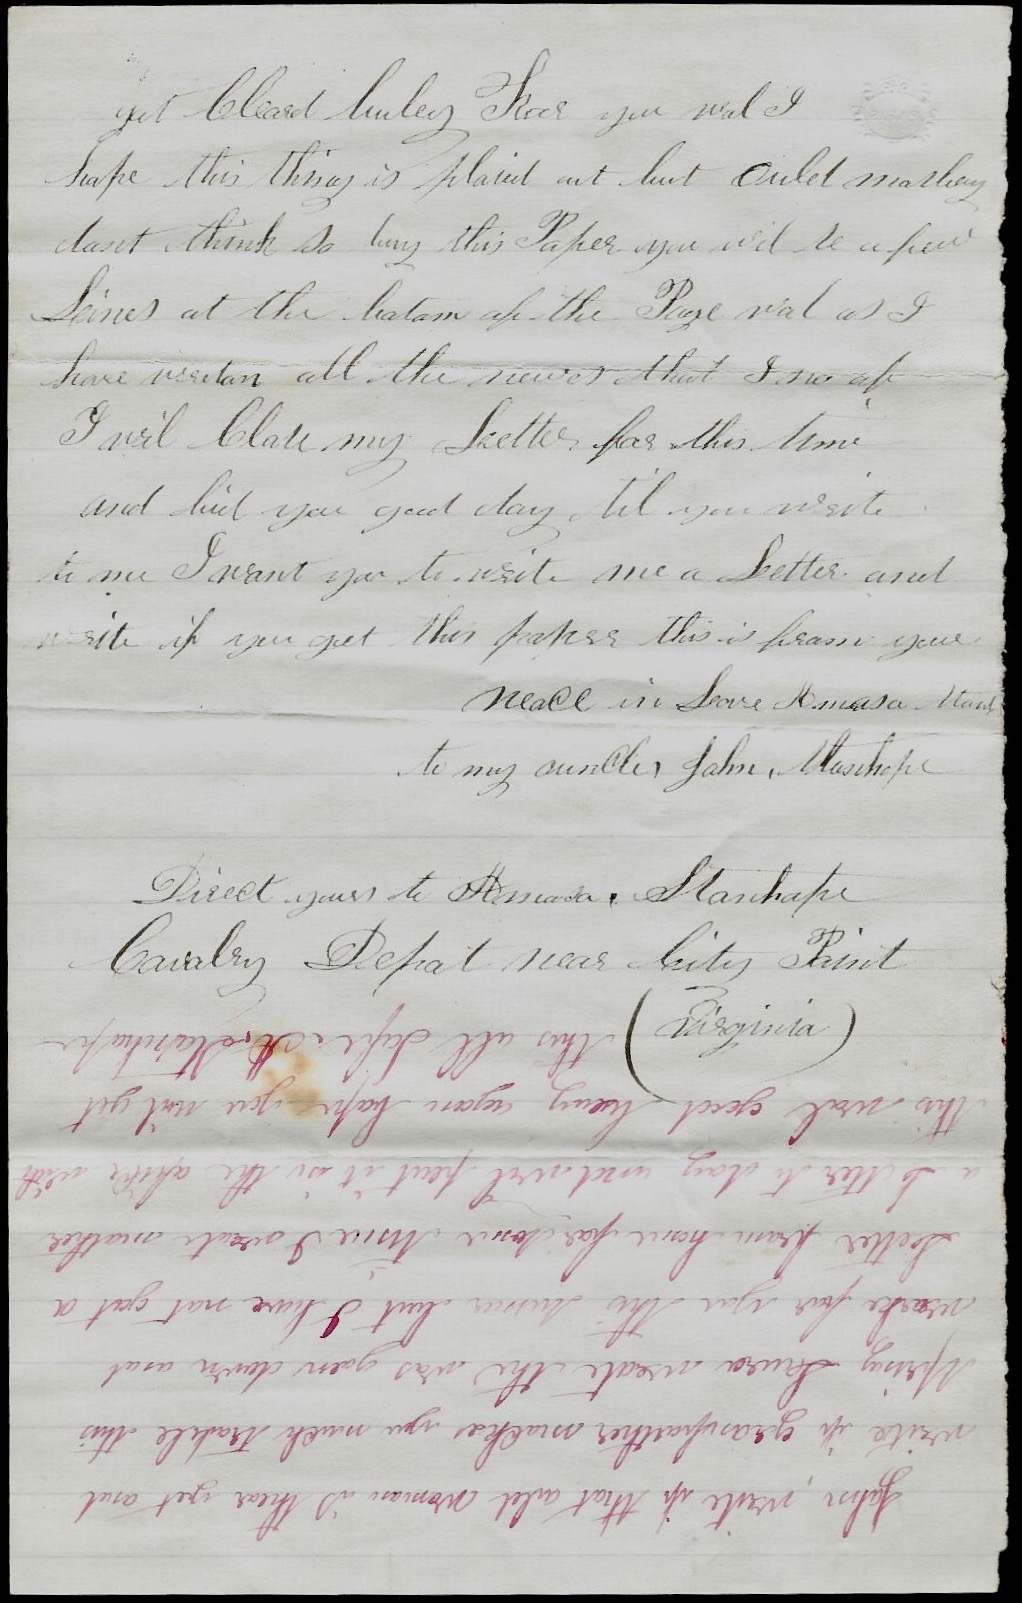 get Cleard buley for you wal I
hope this thing is plaid out but Ould marbery
dont think so bury this Paper you wil se a few
Leines at the botam of the Page wal as I
have writan all the newes that I no of
I wil Close my Leetter for this time
and bid you good day til you write
to me I want you to write me a Letter and
write if you get this paper this is fram your
neace in Love Amasa Stanh
to my ouncle John, Stanhope
Direct yours to Amasa, Stanhope
Cavalry Depot near City Point
(Virginia)
John, write if that auld woman is thear yet and
write if granfather makes you much trubble this
Spring Laura wroate she was goen down and
worke for you this sumer but I have not got a
Leetter fram home for some time I wroate another
a Letter to day and wil put it in the ofice with
this wal good buy again hope you wil get
this all Safe A. Stanhope